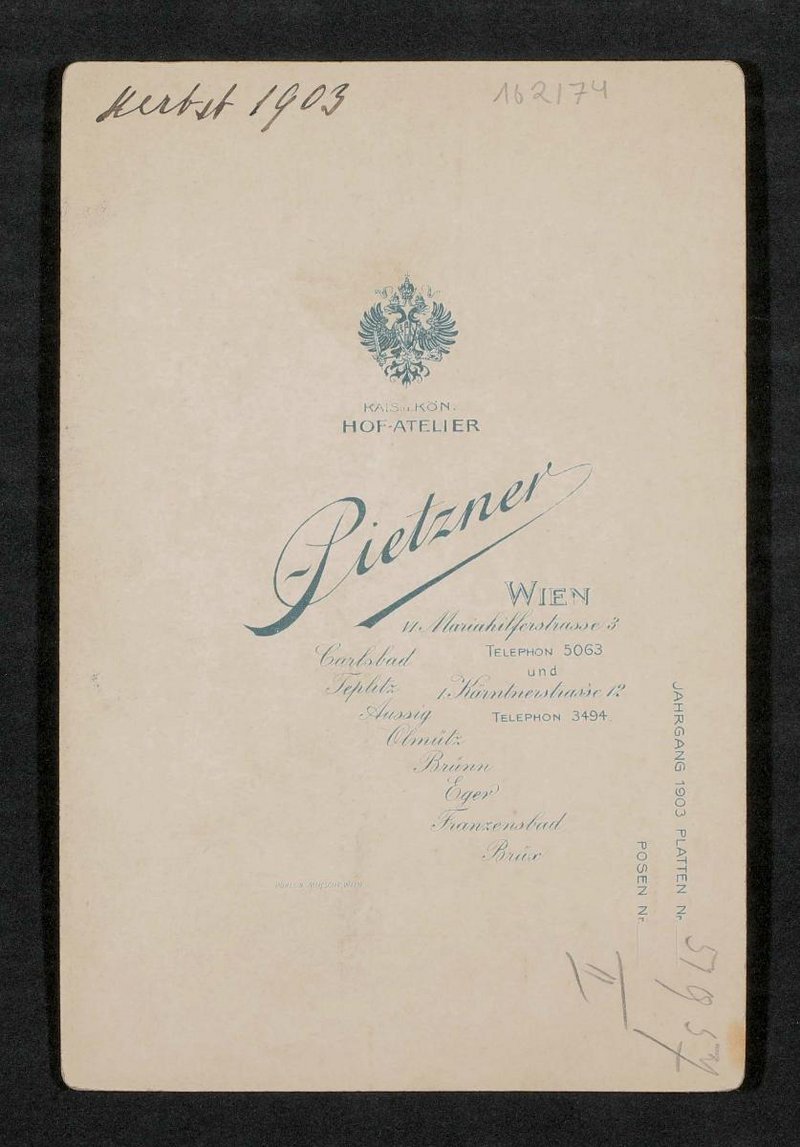 Herbst 1903
162174
KAIS. u. KÖN.
HOF-ATELIER
Pietzner
WIEN
VI Mariahilferstrasse 3
TELEPHON 5063
und
I Kärntnerstrasse 12
TELEPHON 3494.
Carlsbad
Teplitz
Aussig
Olmütz
Brünn
Eger
Franzensbad
Brüx
JAHRGANG 1903 PLATTEN Nr.
POSEN Nr.
II